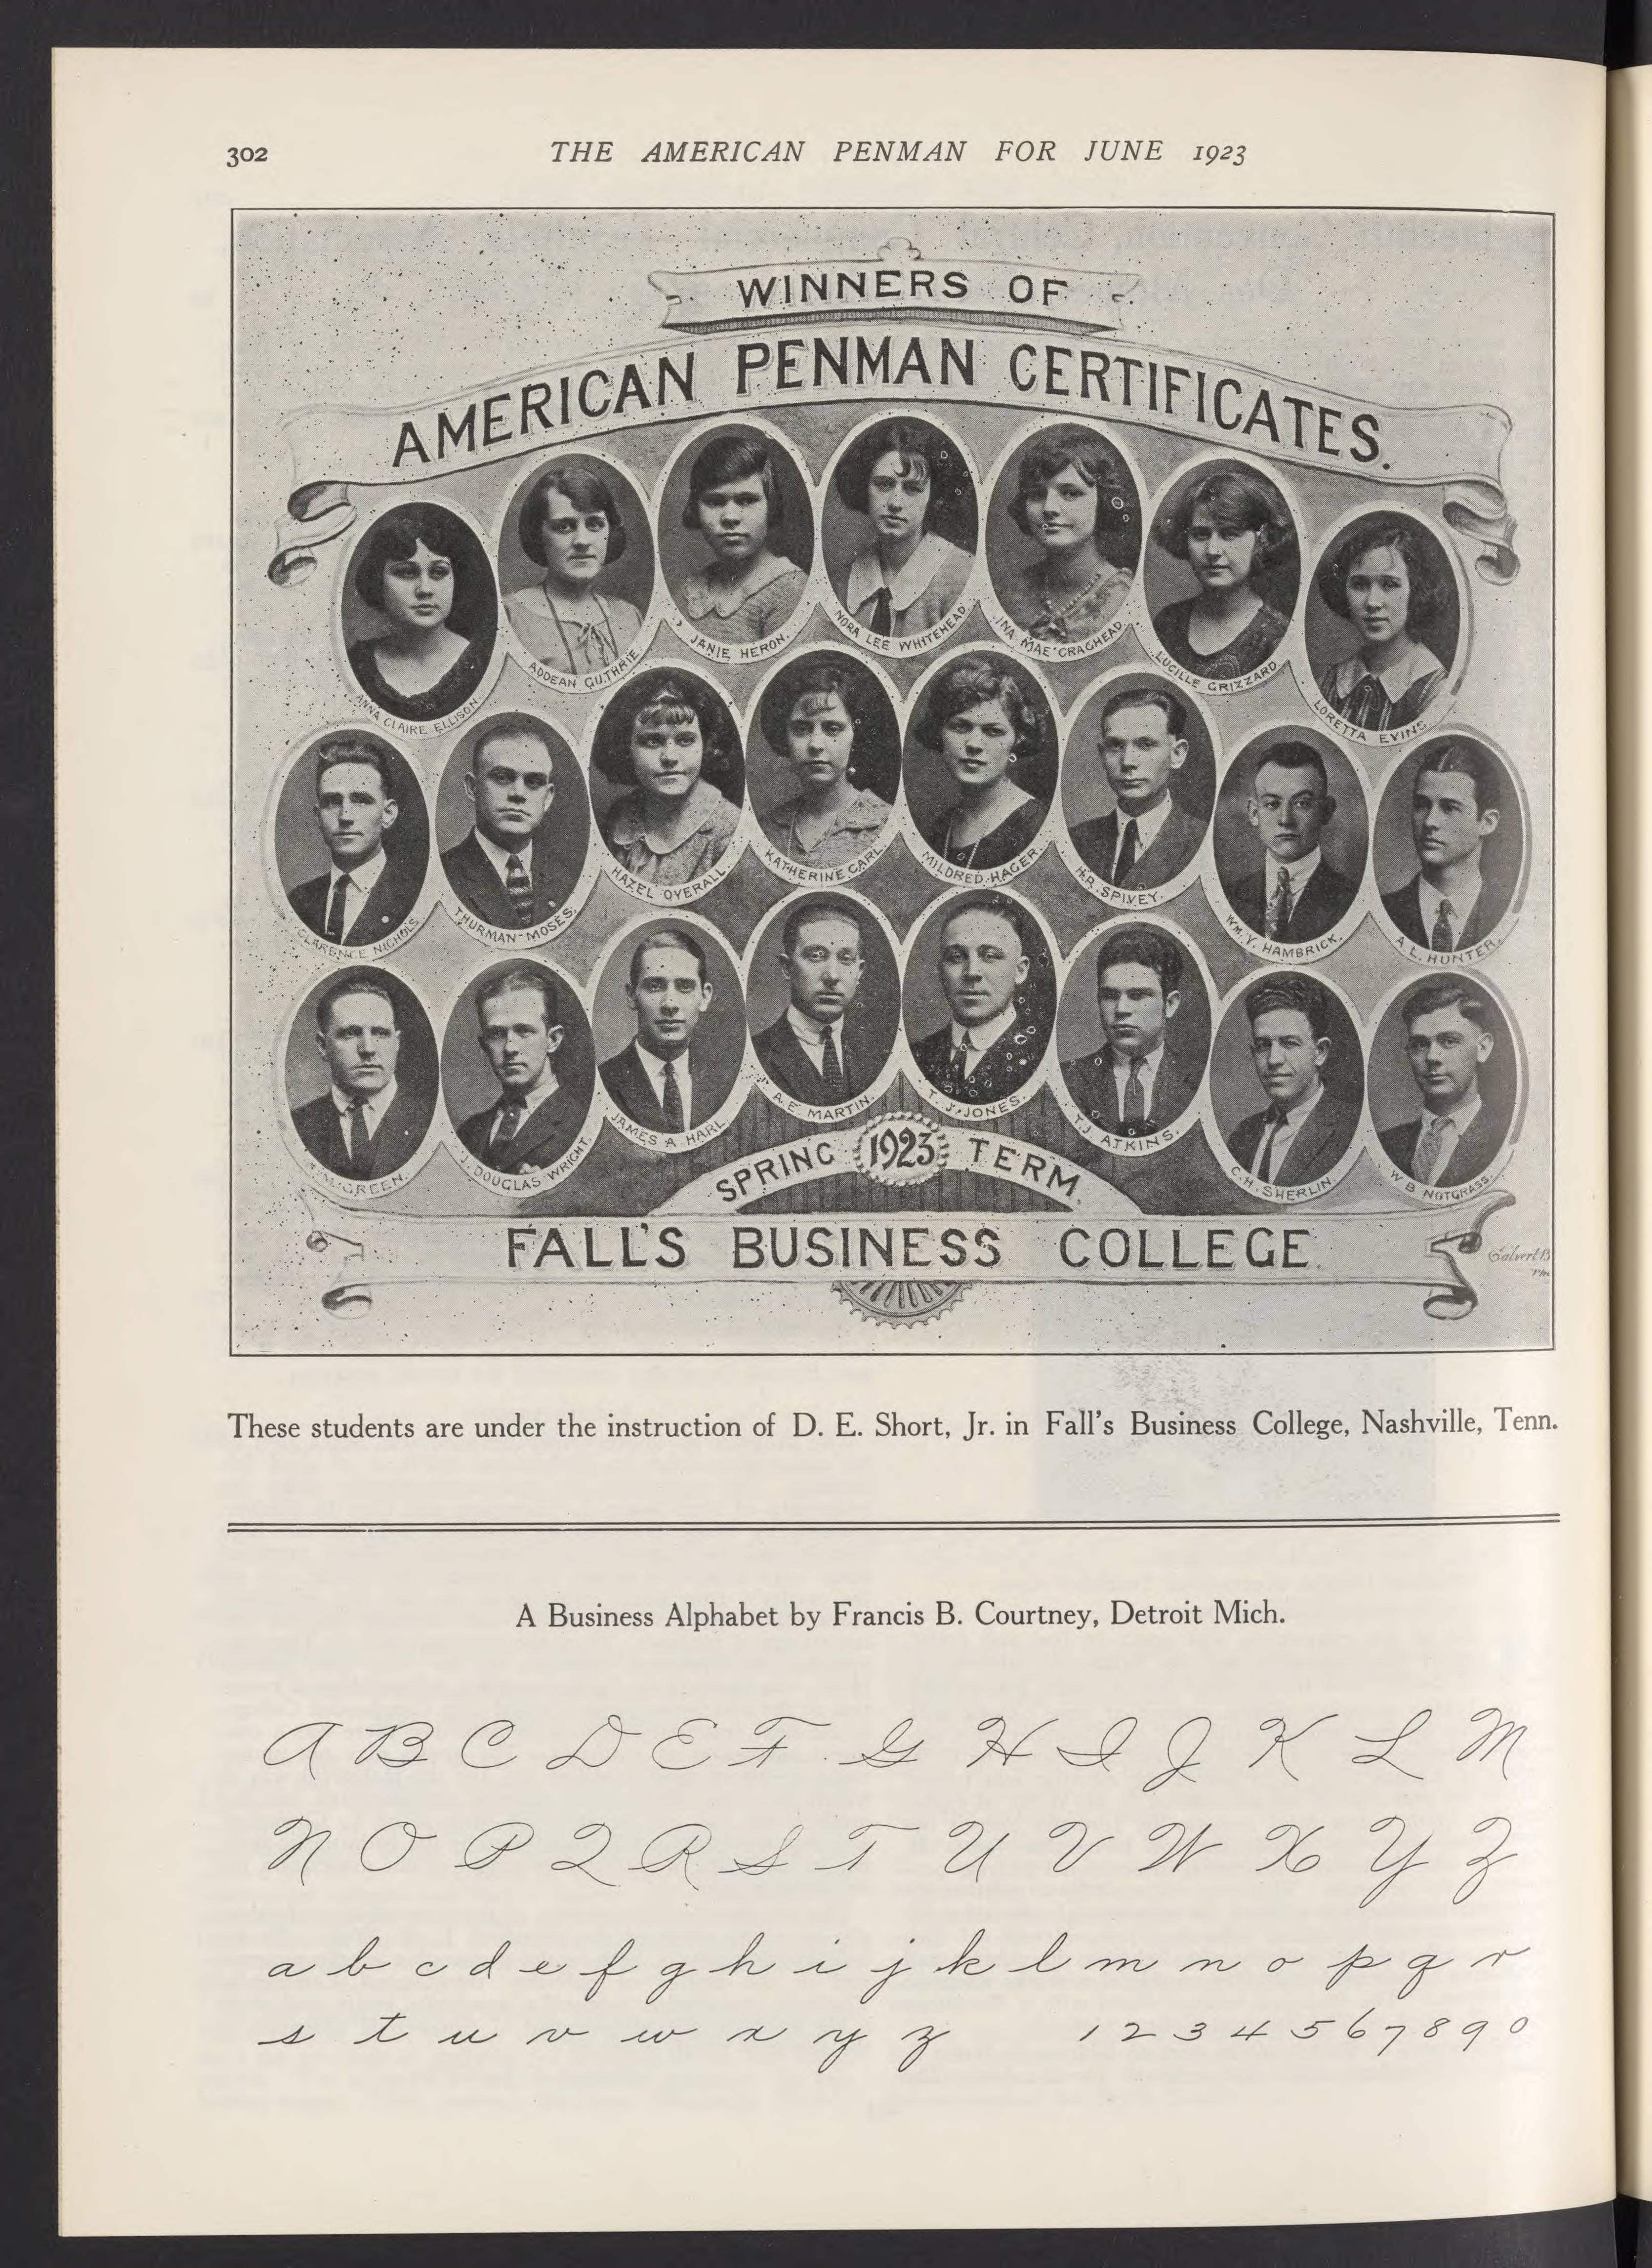 302
THE AMERICAN PENMAN FOR JUNE 1923
WINNERS OF
AMERICAN PENMAN CERTIFICATES.
ANNA CLAIRE ELLISON
ADDEAN GUTHRIE
JANIE HERON.
NORA LEE WHITEHEAD
INA MAE CRAGHEAD
LUCILLE GRIZZARD
LORETTA EVINS
CLARENCE NICHOLS
THURMAN MOSES.
HAZEL OVERALL
KATHERINE CARL
MILDRED HAGER
H.R. SPIVEY.
WM. V. HAMBRICK.
A. L. HUNTER.
GREEN.
J. DOUGLAS WRIGHT.
JAMES A. HARL
A. E. MARTIN.
T. J. JONES.
T. J. ATKINS.
C. H. SHERLIN
W B NOTGRASS.
SPRING 1923 TERM.
FALL'S BUSINESS COLLEGE.
These students are under the instruction of D. E. Short, Jr. in Fall's Business College, Nashville, Tenn.
A Business Alphabet by Francis B. Courtney, Detroit Mich.
A B C D E F G H I J K L M
N O P Q R S T U V W X Y Z
a b c d e f g h i j k l m n o p q r
s t u v w x y z 1 2 3 4 5 6 7 8 9 0